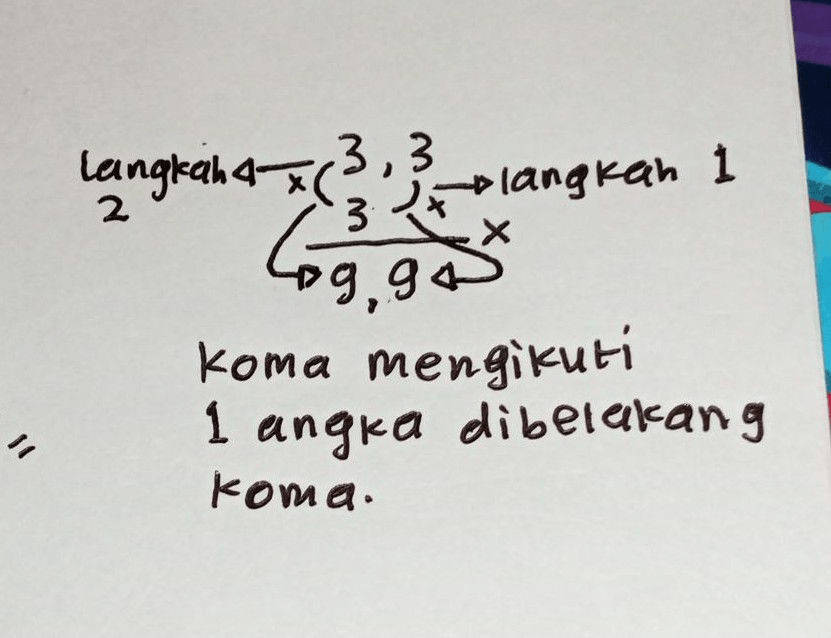 3,3
langkah 2 x x langkah 1
3 x
9,9
Koma mengikuti
1 angka dibelakang
koma.
=